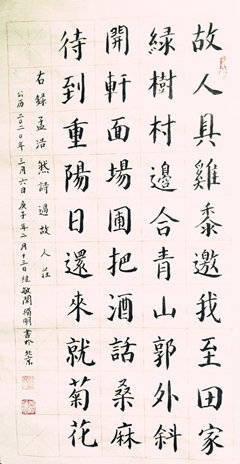 故人具雞黍邀我至田家
緑樹村邊合青山郭外斜
開軒面場圃把酒話桑麻
待到重陽日還來就菊花
右録孟浩然詩過故人莊
公历二〇二〇年三月六日庚子年二月十三日 書於北京